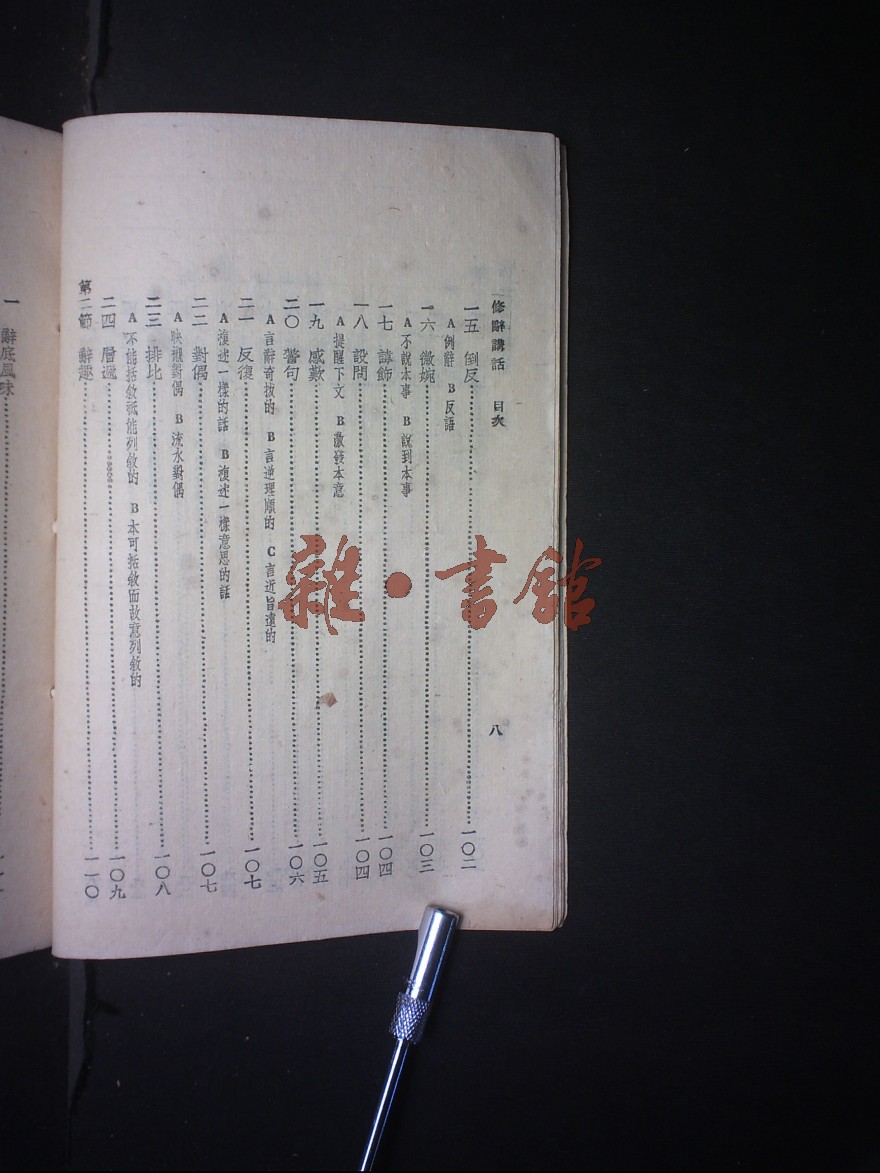 修辭講話 目次 八
一五 倒反……一〇二
A 例辭 B 反語
一六 微婉……一〇三
A 不說本事 B 說到本事
一七 諱飾……一〇四
一八 設問……一〇四
A 提醒下文 B 激發本意
一九 感歎……一〇五
二〇 警句……一〇六
A 言辭奇拔的 B 言逆理順的 C 言近旨遠的
二一 反復……一〇七
A 複述一樣的話 B 複述一樣意思的話
二二 對偶……一〇七
A 映襯對偶 B 流水對偶
二三 排比……一〇八
A 不能括敘祇能列敘的 B 本可括敘而故意列敘的
二四 層遞……一〇九
第二節 辭趣……一一〇
一 辭底風味……
雜·書館